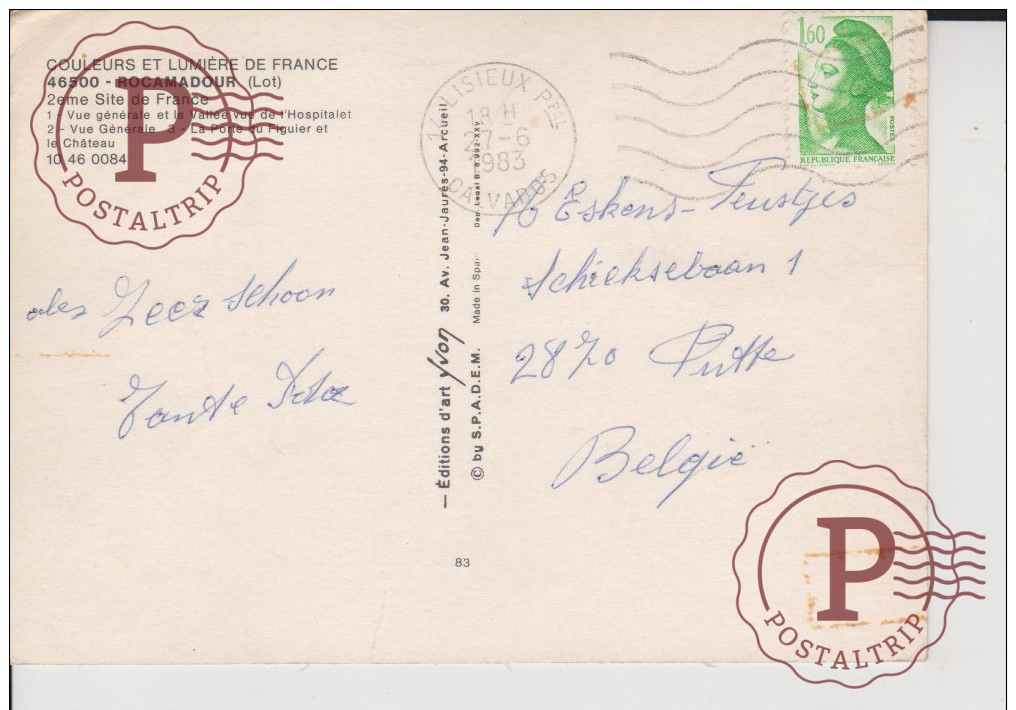 COULEURS ET LUMIÈRE DE FRANCE
46500 - ROCAMADOUR (Lot)
2eme Site de France
1 - Vue générale et la Vallée vue de l'Hospitalet
2 - Vue Générale 3 - La Porte du Figuier et
le Château
10 46 0084
P
POSTALTRIP
Zeer schoon
Tante
— Éditions d'art yvon 30. Av. Jean-Jaurès-94-Arcueil
© by S.P.A.D.E.M. Made in Spain Dep. Legal B.
83
14 LISIEUX PPAL
18 H
27-6
1983
CALVADOS
1,60
POSTES
REPUBLIQUE FRANÇAISE
Eskens-Feustjes
Schieksebaan 1
2870 Putte
België
P
POSTALTRIP